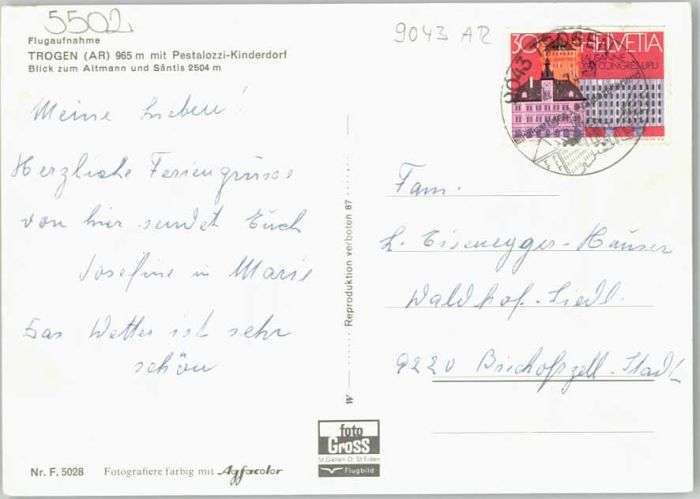 5502
Flugaufnahme
TROGEN (AR) 965 m mit Pestalozzi-Kinderdorf
Blick zum Altmann und Säntis 2504 m
9043 AR
30 HELVETIA
LAUSANNE
CONGRES UPU
9043 TROGEN
Meine Lieben!
Herzliche Feriengrüsse
von hier sendet Euch
Josefine u Marie
Das Wetter ist sehr
schön
W Reproduktion verboten 87
Fam.
L. Eisenegger-Häuser
Waldhof-Siedl.
9220 Bischofszell-Stadt
foto
Gross
St.Gallen
Flugbild
Nr. F. 5028 Fotografiere farbig mit Agfacolor